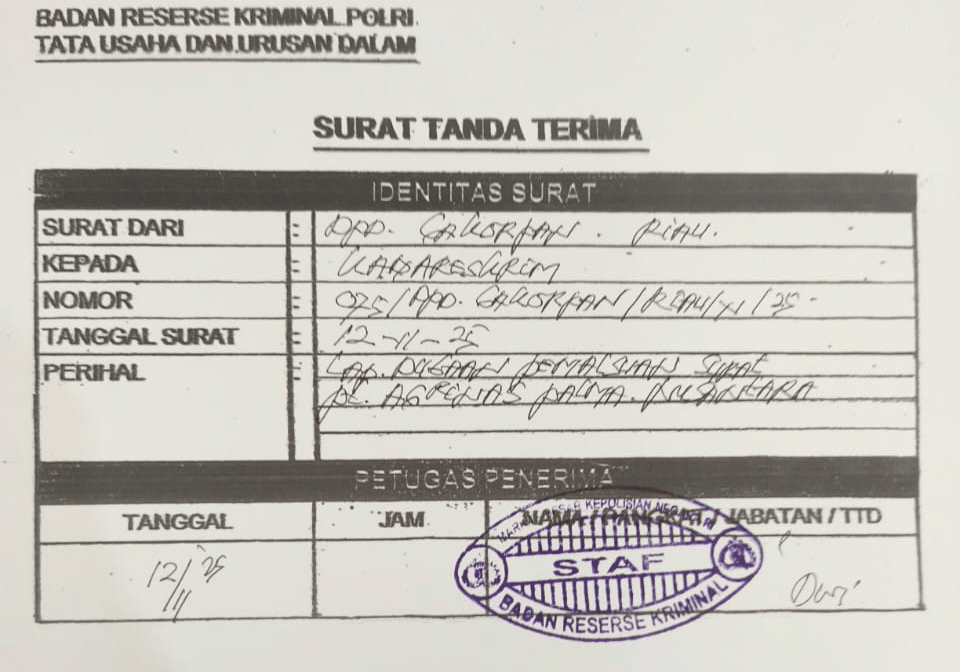 BADAN RESERSE KRIMINAL POLRI
TATA USAHA DAN URUSAN DALAM
SURAT TANDA TERIMA
IDENTITAS SURAT
SURAT DARI : DPD. GAKORPAN. RIAU.
KEPADA : KABARESKRIM
NOMOR : 075/DPD.GAKORPAN/RIAU/XI/25-
TANGGAL SURAT : 12-11-25
PERIHAL : LAP. DUGAAN PEMALSUAN SURAT
PT. AGRINAS PALMA NUSANTARA
PETUGAS PENERIMA
TANGGAL JAM NAMA / PANGKAT / JABATAN / TTD
12/11 '25
MARKAS BESAR KEPOLISIAN NEGARA RI
STAF
BADAN RESERSE KRIMINAL